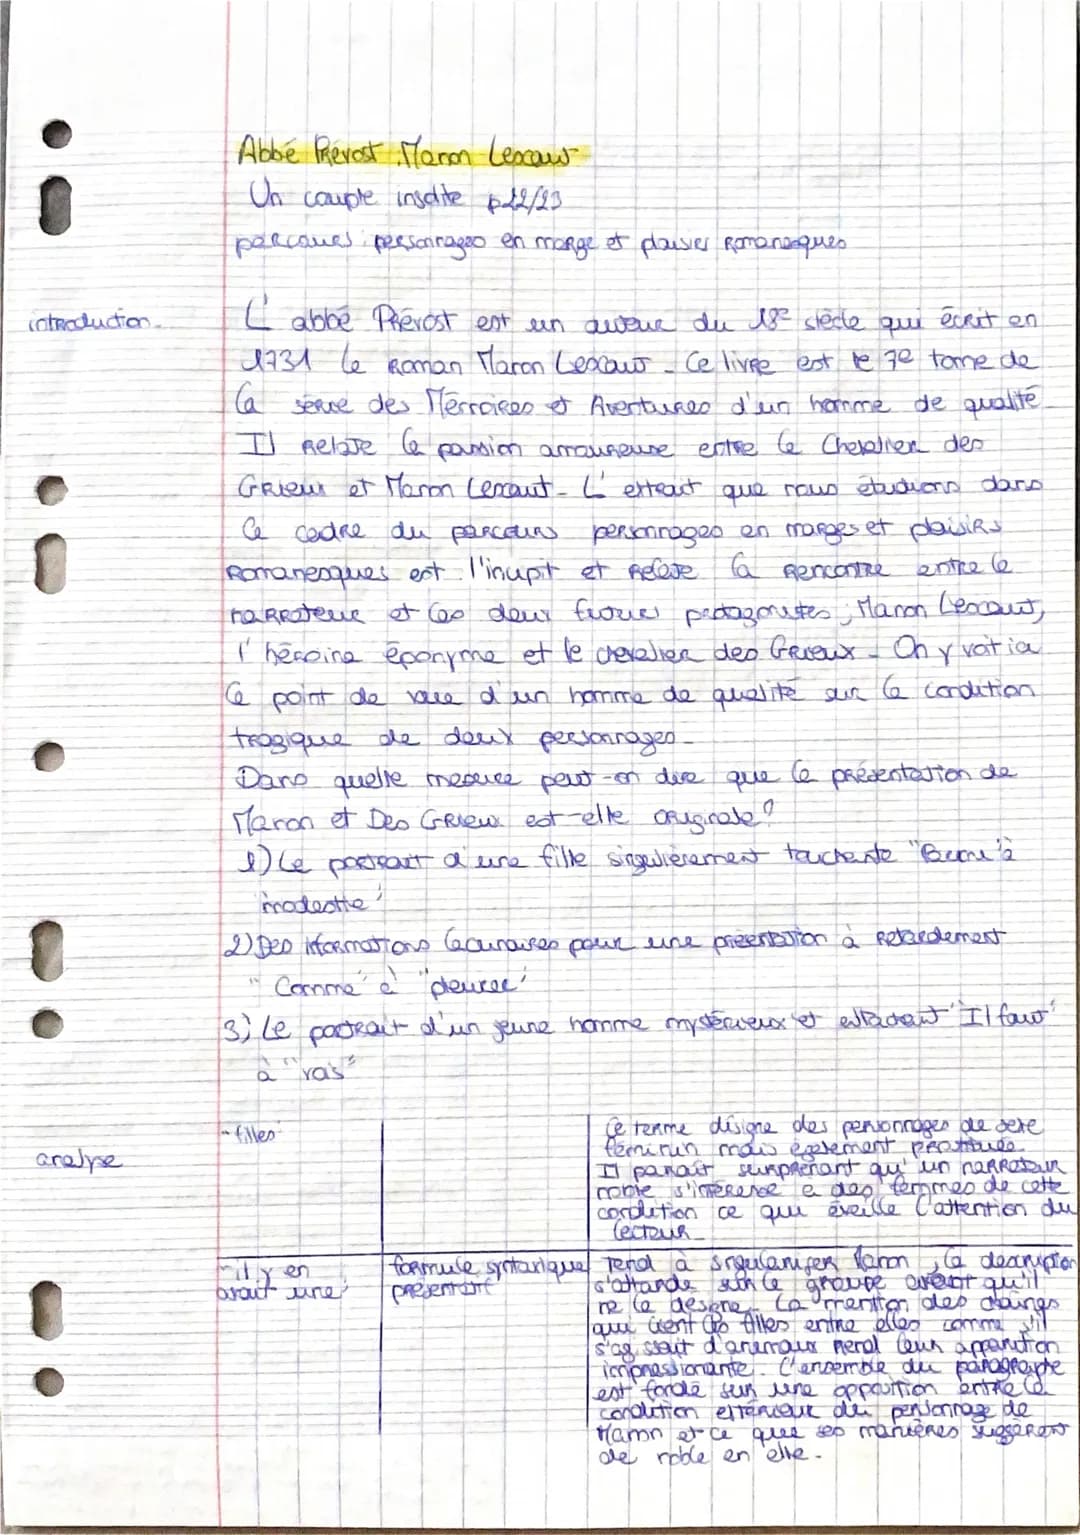 Abbé Prévost, Manon Lescaut
Un couple insolite p22/23
parcours : personnages en marge et plaisirs Romanesques
introduction.
L'abbé Prévost est un auteur du 18e siècle qui écrit en
1731 le Roman Manon Lescaut. Ce livre est le 7e tome de
la série des Mémoires et Aventures d'un homme de qualité.
Il Relate la passion amoureuse entre le Chevalier des
Grieux et Manon Lescaut. L'extrait que nous étudions dans
le cadre du parcours personnages en marges et plaisirs
Romanesques est l'incipit et Relate la Rencontre entre le
narrateur et les deux futurs protagonistes, Manon Lescaut,
l'héroïne éponyme et le chevalier des Grieux. On y voit ici
le point de vue d'un homme de qualité sur la condition
tragique de deux personnages.
Dans quelle mesure peut-on dire que la présentation de
Manon et Des Grieux est-elle originale ?
1) Le portrait d'une fille singulièrement touchante "Parmi" à
"modestie"
2) Des informations lacunaires pour une présentation à Retardement
"Comme" à "pleurer"
3) Le portrait d'un jeune homme mystérieux et attachant "Il faut"
à "vois"
analyse
"filles"
Ce terme désigne des personnages de sexe
féminin mais également prostituée.
Il paraît surprenant qu'un narrateur
noble s'intéresse à des femmes de cette
condition ce qui éveille l'attention du
lecteur.
"il y en
avait une"
formule syntaxique
présentatif
Tend à singulariser Manon, la description
s'attarde sur le groupe avant qu'il
ne la désigne. La mention des chaînes
qui lient les filles entre elles comme s'il
s'agissait d'animaux rend leur apparition
impressionnante. L'ensemble du paragraphe
est fondé sur une opposition entre la
condition extérieur du personnage de
Manon et ce que ses manières suggèrent
de noble en elle.